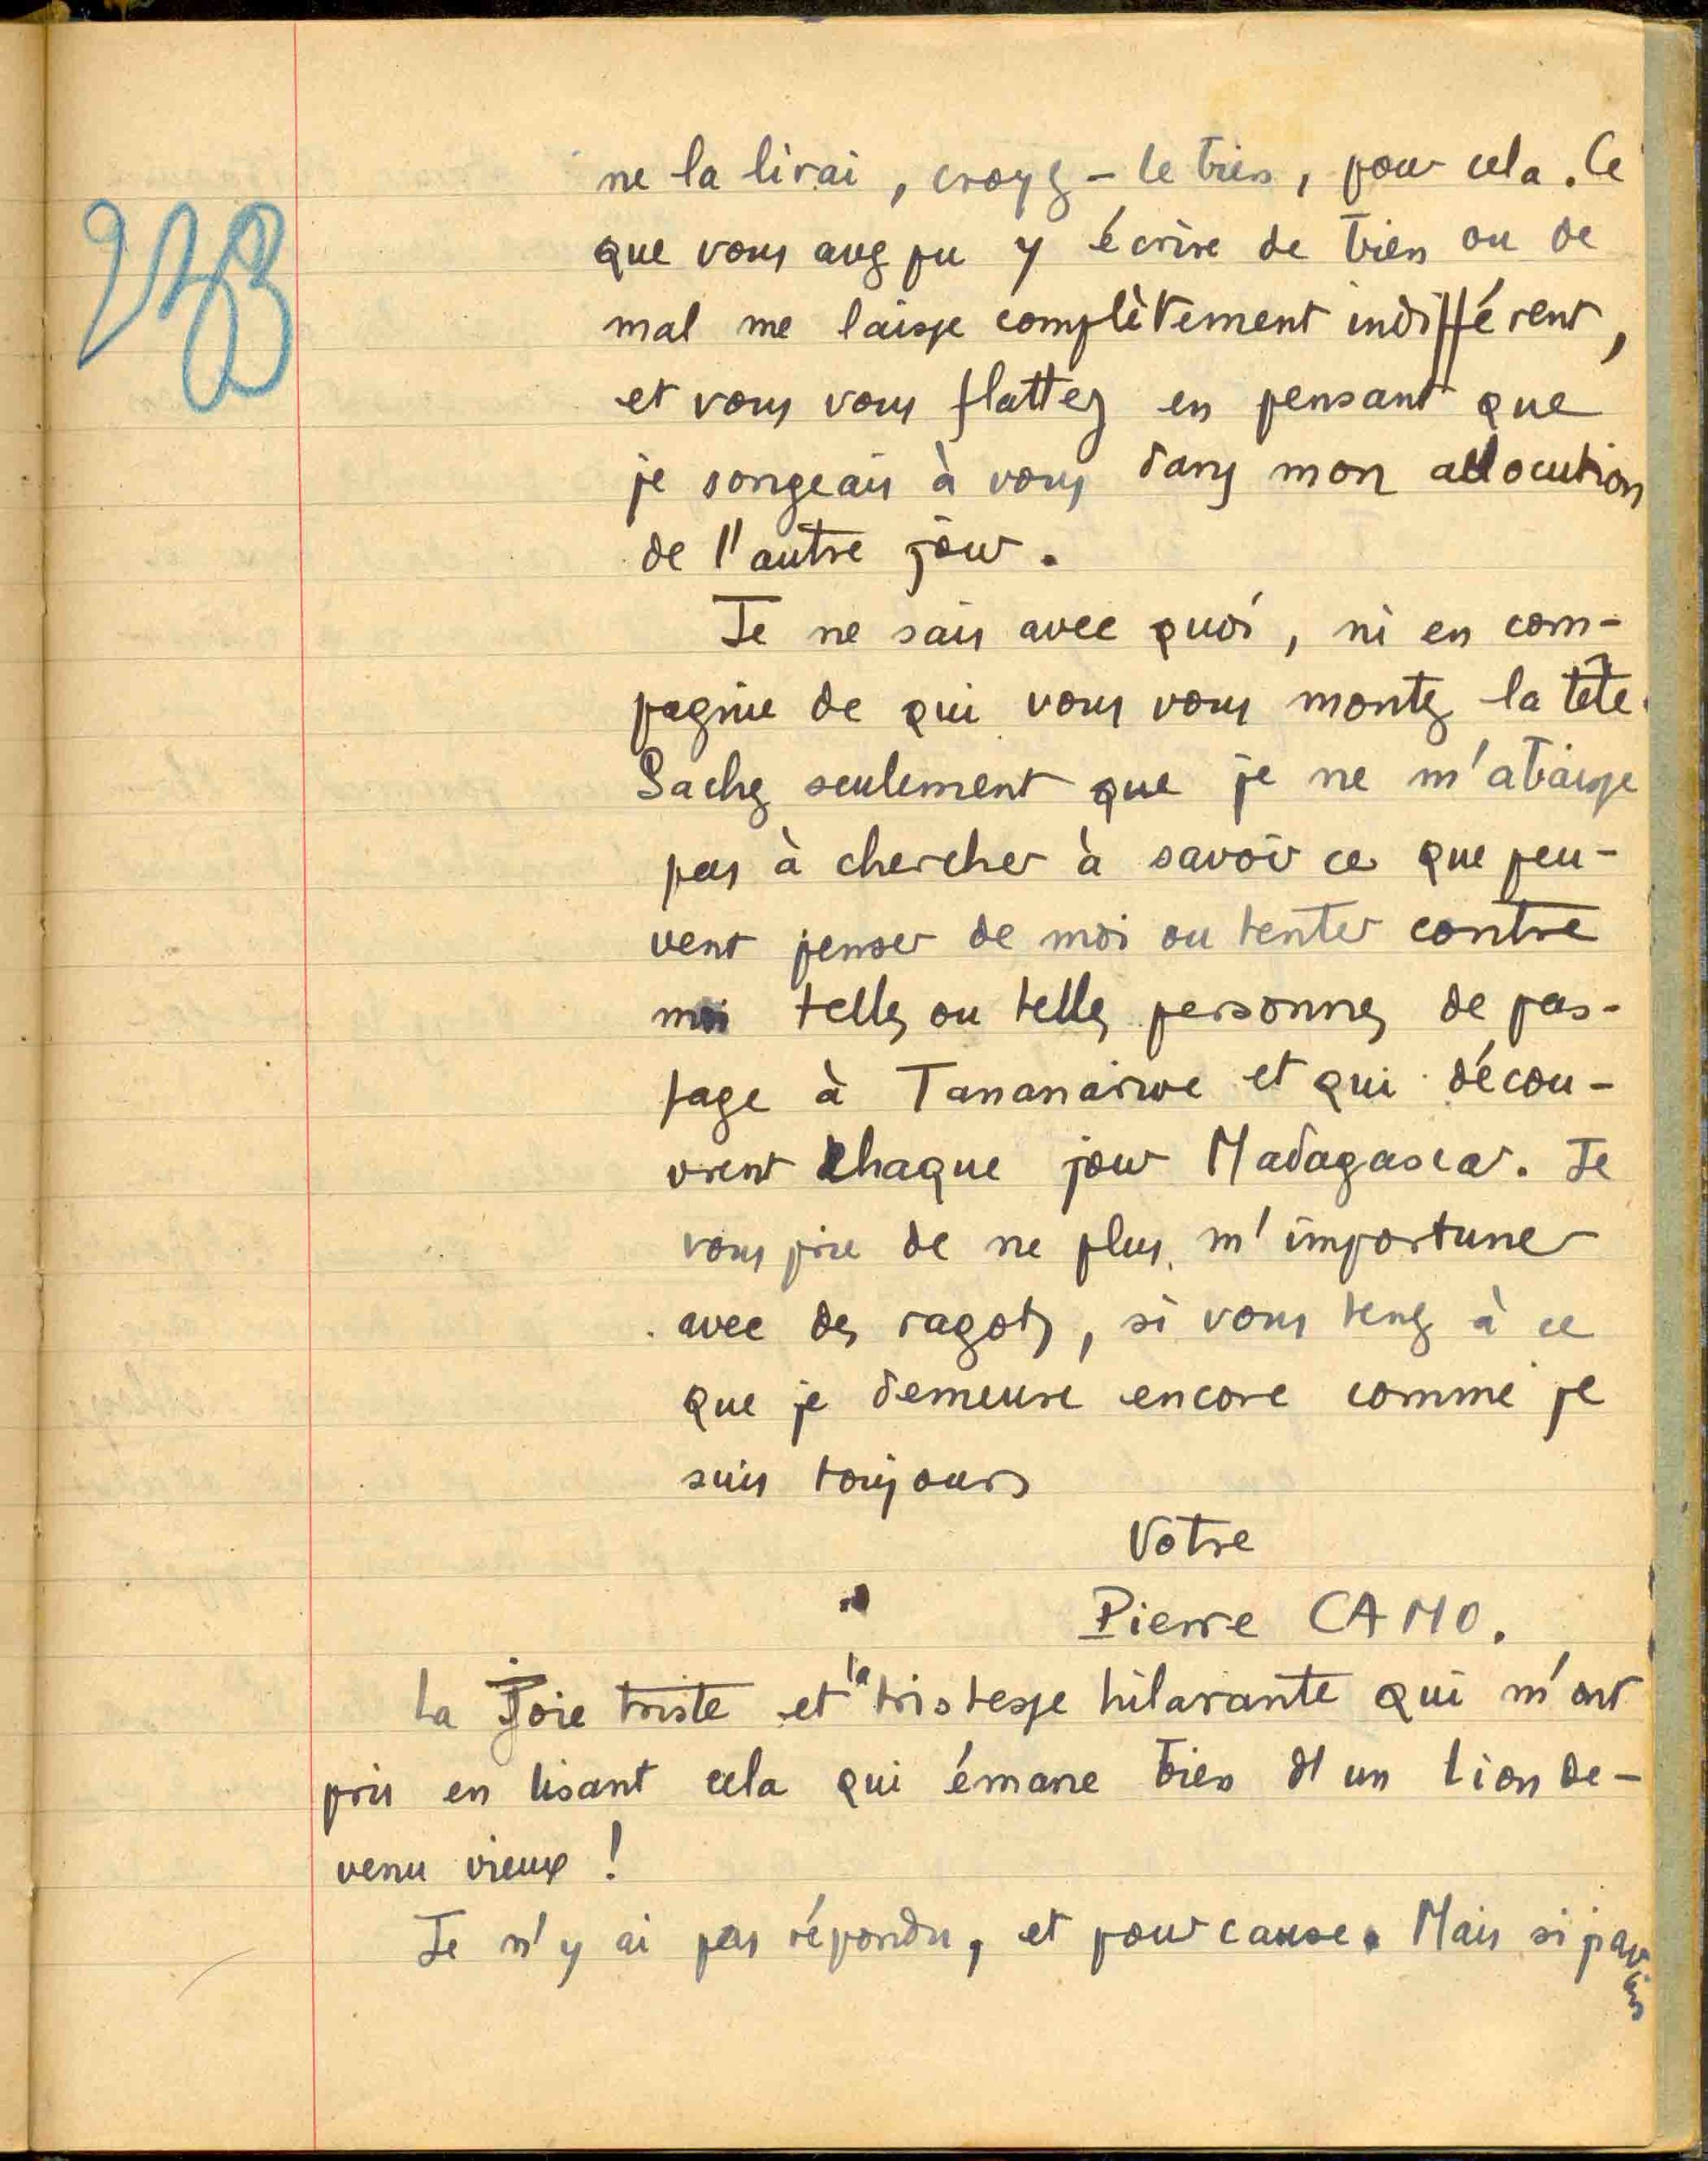 223
ne la lirai, croyez-le bien, pour cela. Ce
que vous avez pu y écrire de bien ou de
mal me laisse complètement indifférent,
et vous vous flattez en pensant que
je songeais à vous dans mon allocution
de l'autre jour.
Je ne sais avec quoi, ni en com-
pagnie de qui vous vous montez la tête.
Sachez seulement que je ne m'abaisse
pas à chercher à savoir ce que peu-
vent penser de moi ou tenter contre
moi telles ou telles personnes de pas-
sage à Tananarive et qui décou-
vrent chaque jour Madagascar. Je
vous prie de ne plus m'importuner
avec des ragots, si vous tenez à ce
que je demeure encore comme je
suis toujours
Votre
Pierre CAMO.
La Joie triste et la tristesse hilarante qui m'ont
pris en lisant cela qui émane bien d'un lion de-
venu vieux !
Je n'y ai pas répondu, et pour cause. Mais si j'avais